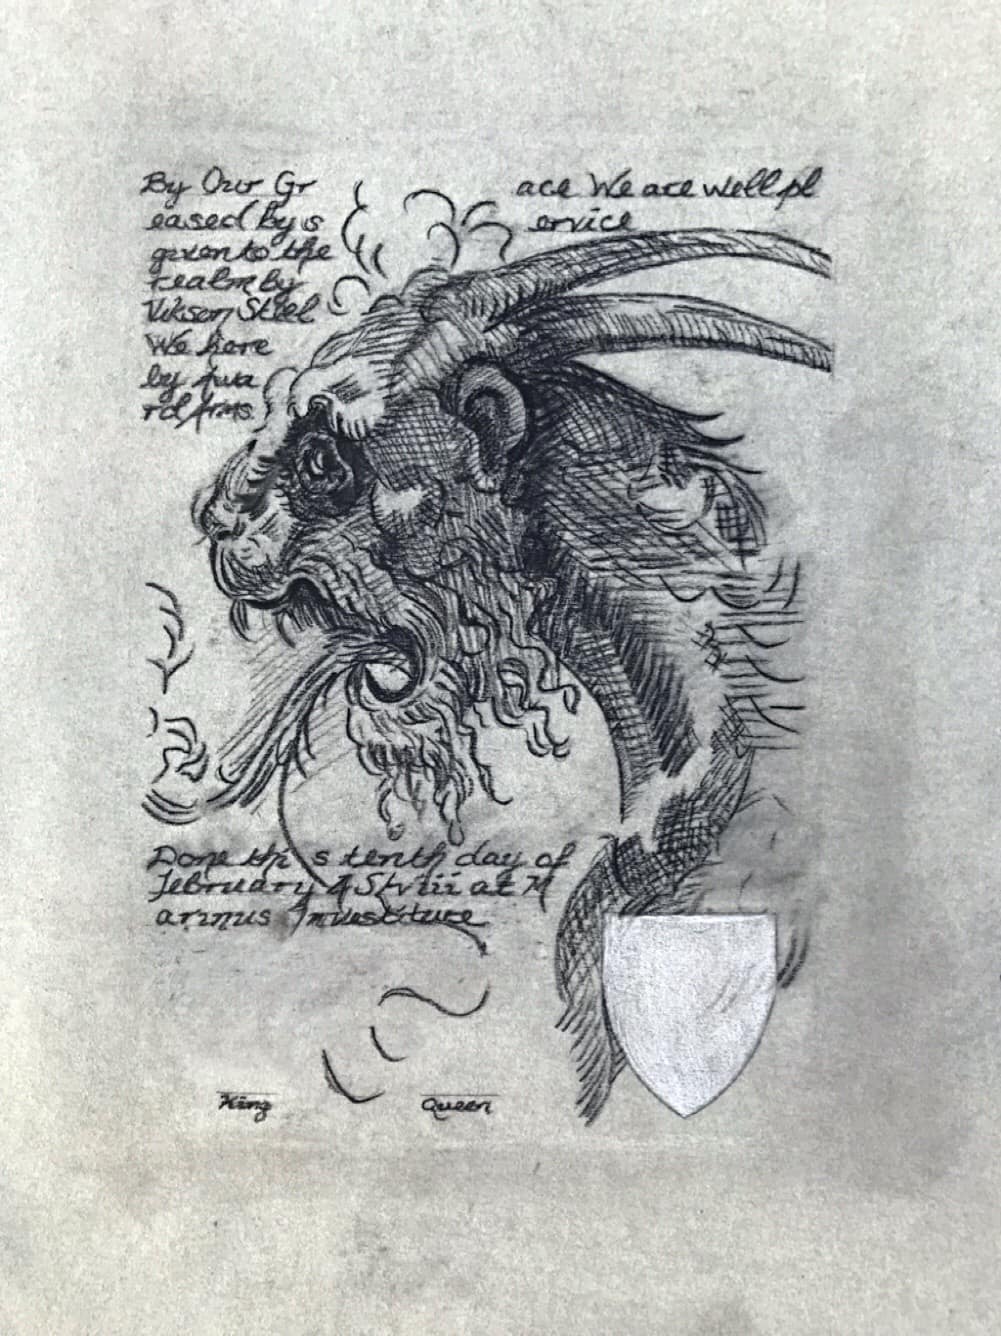 By Our Gr ace We ace well pl
eased by s ervice
given to the
realm by
We here
by Awa
rd Arms
Done thi s tenth day of
February A S at M
Investiture
King Queen